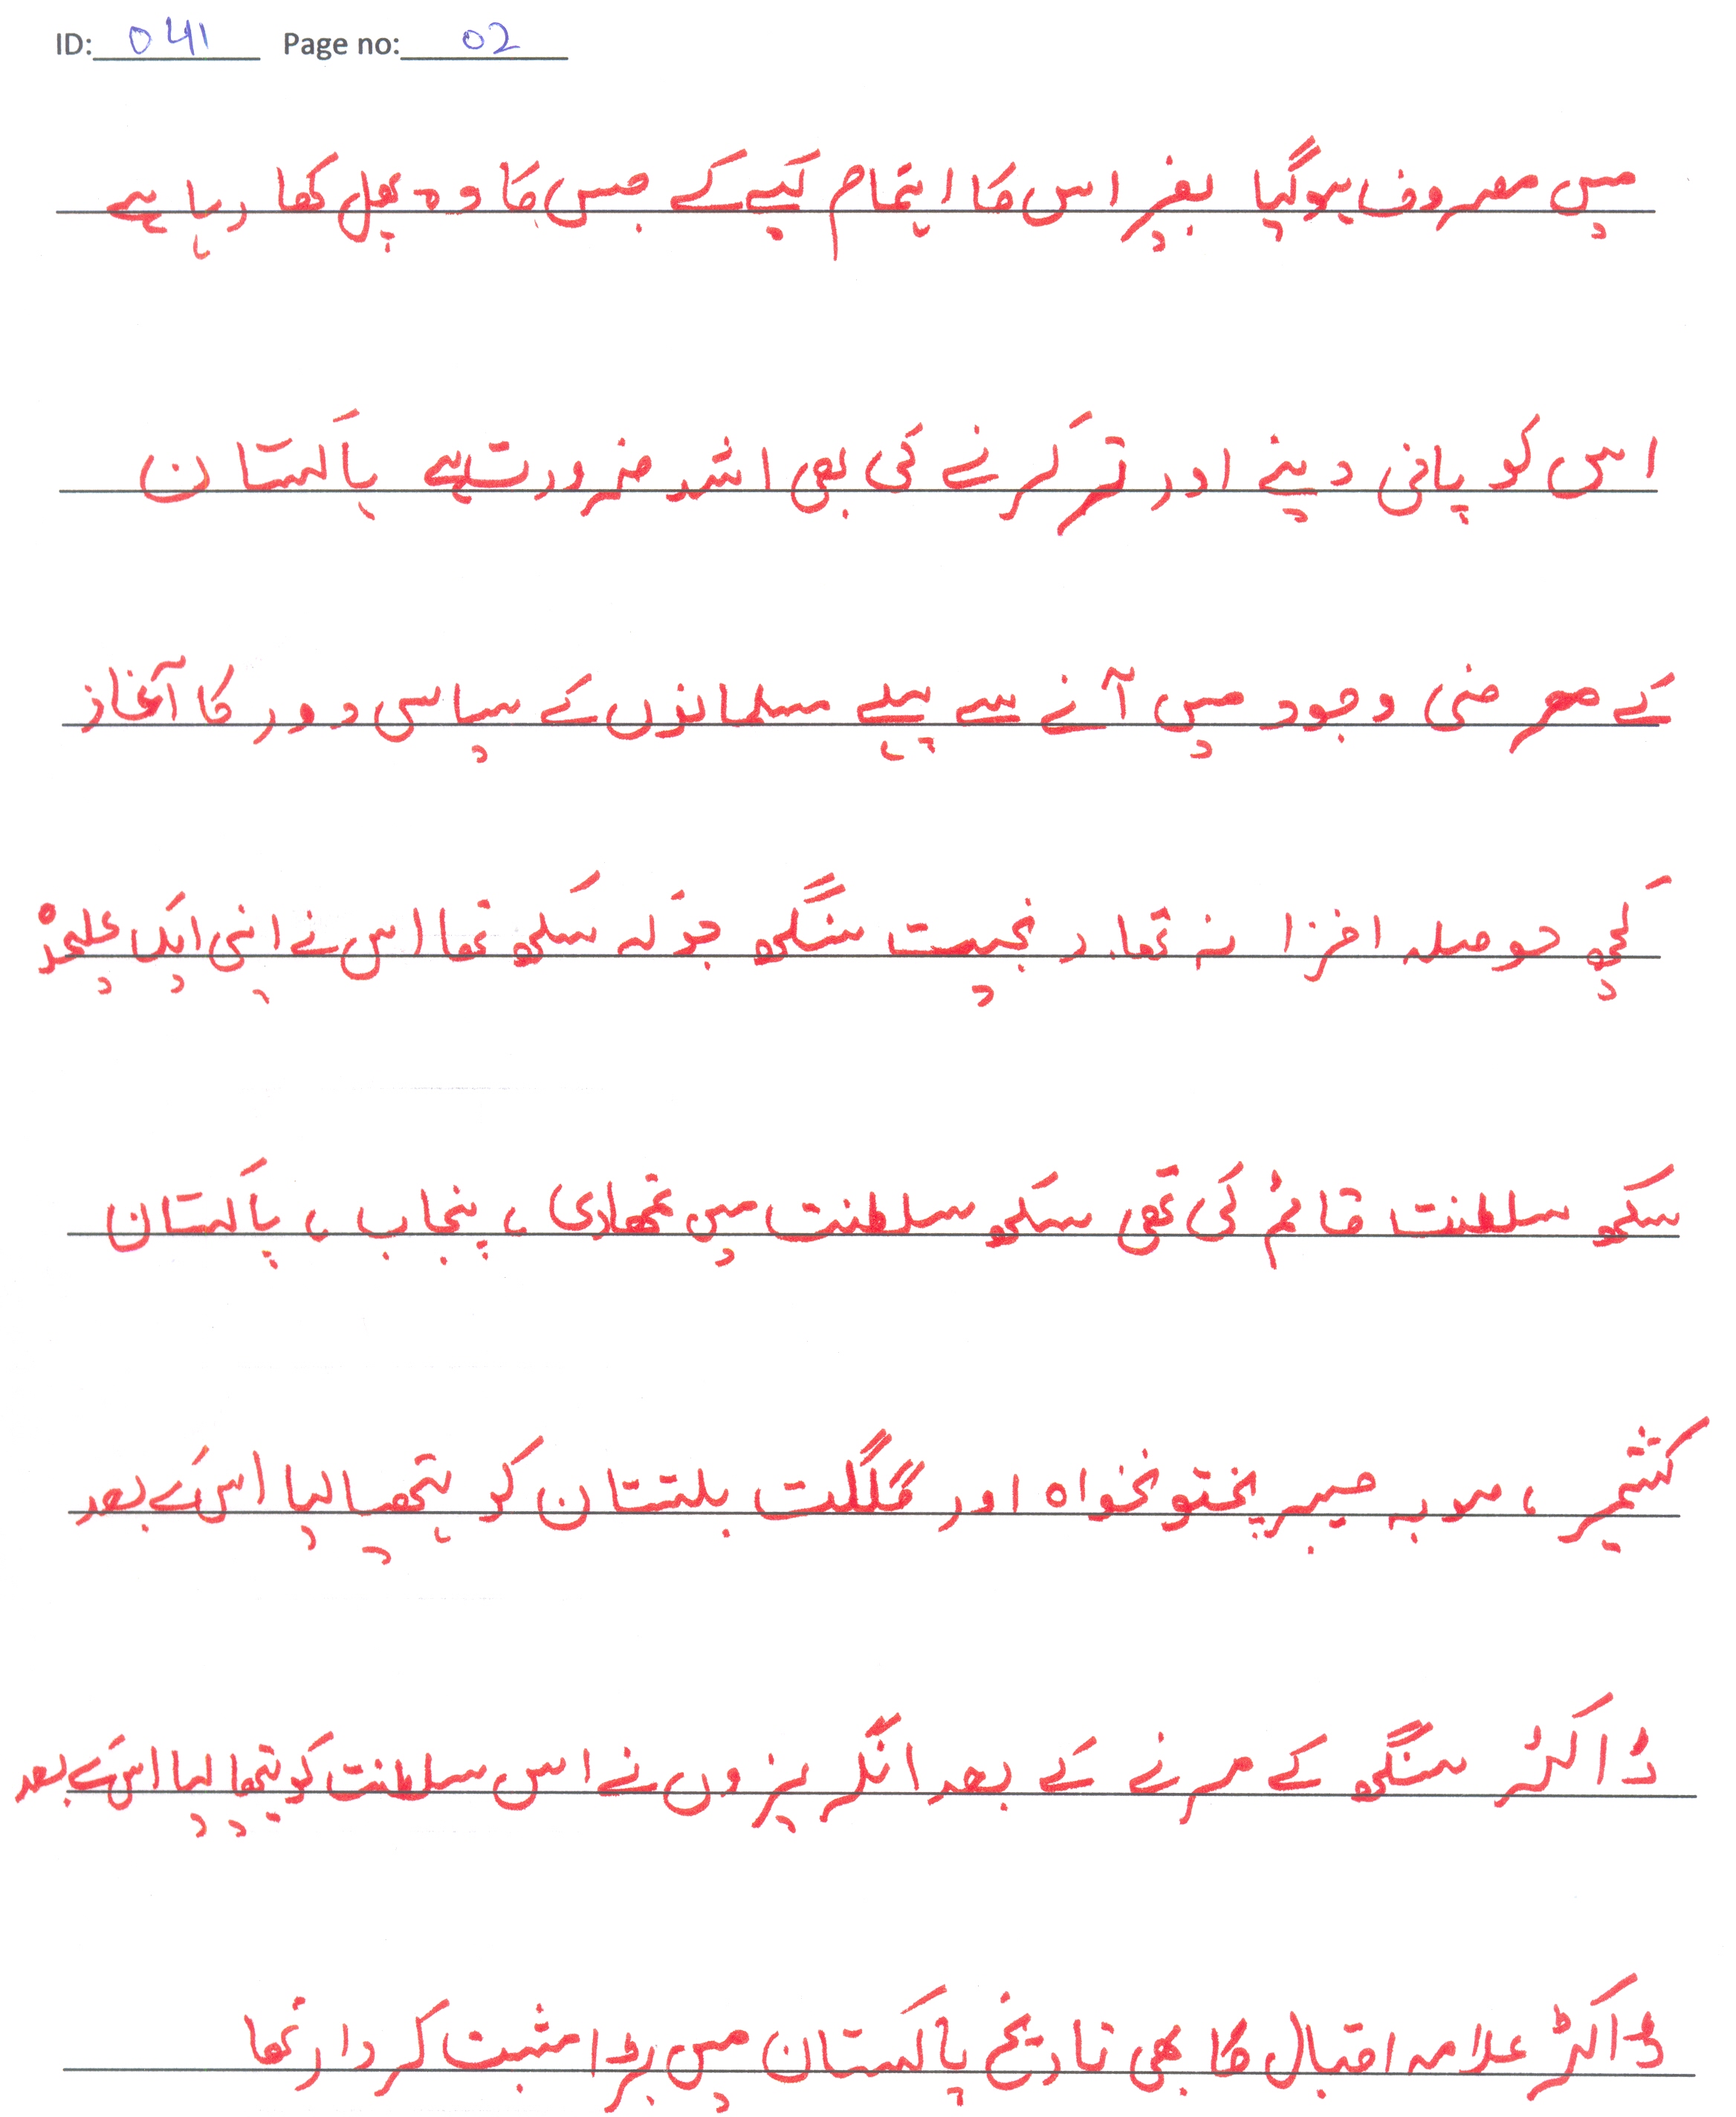 ID: 041 Page no: 02
میں مصروف ہوگیا بغیر اس کا اہتمام کیے کے جس کا وہ پھل کھا رہا ہے
اس کو پانی دینے اور تر کرنے کی بھی اشد ضرورت ہے پاکستان
کے معرضی وجود میں آنے سے پہلے مسلمانوں کے سیاسی دور کا آغاز
کچھ حوصلہ افزا نہ تھا۔ رنجیت سنگھ جو کہ سکھ تھا اس نے اپنی ایک علیحدہ
سکھ سلطنت قائم کی تھی سکھ سلطنت میں بھاری، پنجاب، پاکستان
کشمیر، صوبہ خیبر پختونخواہ اور گلگت بلتستان کو ہتھیا لیا اس کے بعد
ڈاکٹر سنگھ کے مرنے کے بعد انگریزوں نے اس سلطنت کو ہتھیا لیا اس کے بعد
ڈاکٹر علامہ اقبال کا بھی تاریخ پاکستان میں بڑا مثبت کردار تھا